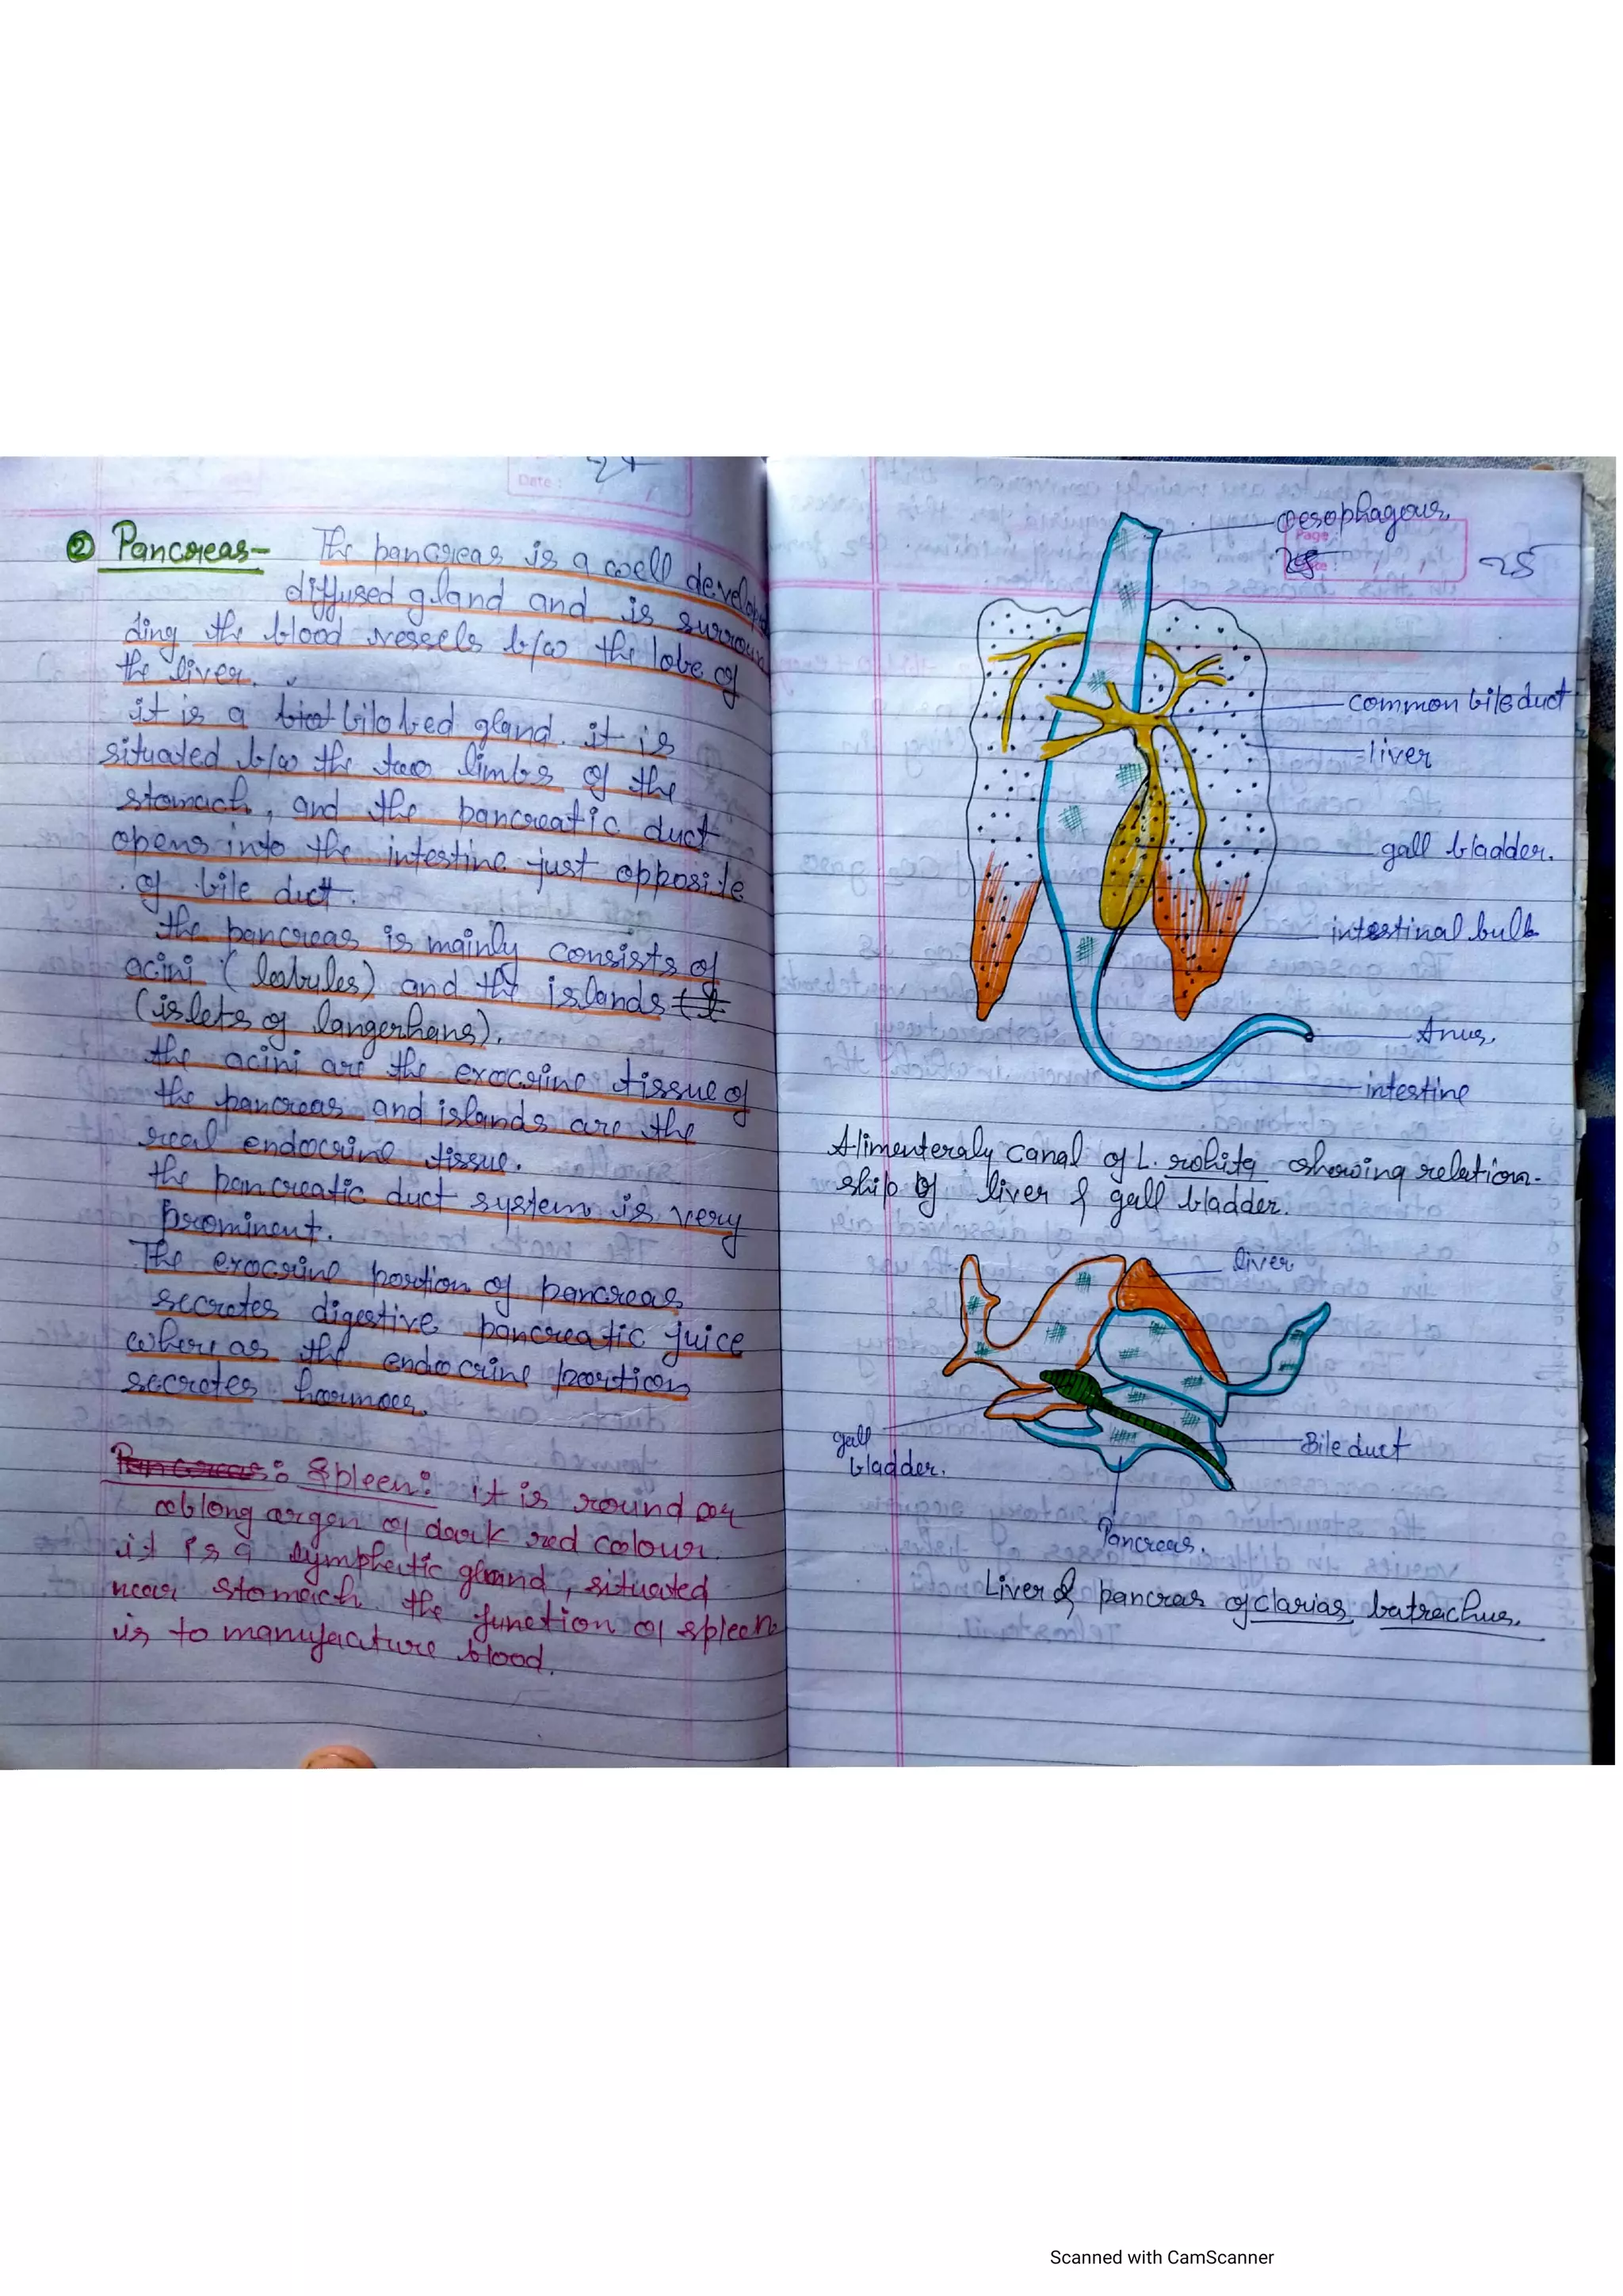 24
Date :
② Pancreas- The pancreas is a well develop
diffused gland and is surroun
ding the blood vessels b/w the lobe of
the liver.
it is a bilobed gland. it is
situated b/w the two limbs of the
stomach, and the pancreatic duct
opens into the intestine just opposite
of bile duct.
the pancreas is mainly consists of
acini (lobules) and the islands
(islets of langerhans).
the acini are the exocrine tissue of
the pancreas and islands are the
real endocrine tissue.
the pancreatic duct system is very
prominent.
The exocrine portion of pancreas
secretes digestive pancreatic juice
where as the endocrine portion
secretes
Pancreas: Spleen: it is round or
oblong organ of dark red colour.
it is a lymphatic gland, situated
near stomach. the function of spleen
is to manufacture blood.
oesophagous
Page :
25
common bile duct
liver
gall bladder.
intestinal bulb
Anus.
intestine
Alimenteraly canal of L. rohita showing relation-
ship of liver & gall bladder.
liver
gall
bladder.
Bile duct
Pancreas.
Liver & pancreas of clarias batrachus.
Scanned with CamScanner